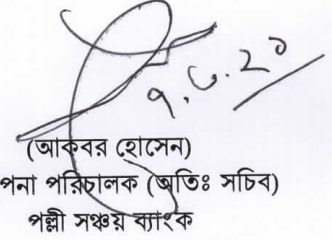 ৭.৬.২১
(আকবর হোসেন)
পনা পরিচালক (অতিঃ সচিব)
পল্লী সঞ্চয় ব্যাংক